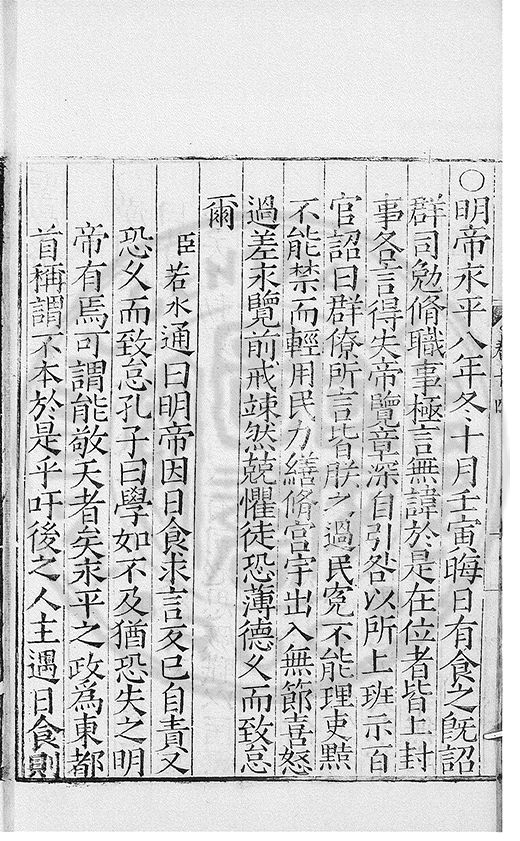 ○明帝永平八年冬十月壬寅晦日有食之既詔
群司勉脩職事極言無諱於是在位者皆上封
事各言得失帝覽章深自引咎以所上班示百
官詔曰群僚所言皆朕之過民寃不能理吏黠
不能禁而輕用民力繕脩宫宇出入無節喜怒
過差永覽前戒竦然兢懼徒恐薄德乆而致怠
爾
臣若水通曰明帝因日食求言反已自責又
恐乆而致怠孔子曰學如不及猶恐失之明
帝有焉可謂能敬天者矣永平之政為東都
首稱謂不本於是乎吁後之人主遇日食則
卷十四